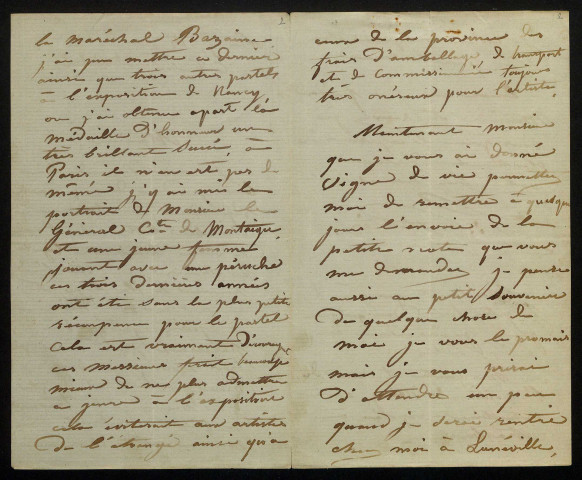 2
le maréchal Bazaine
j'ai pu mettre ce dernier
ainsi que trois autres pastels
à l'exposition de Nancy
ou j'ai obtenu apart la
médaille d'honneur un
très brillant succé, à
Paris il n'en est pas de
même j'y ai mis le
portrait de Monsieur le
Général Cte de Montaigu
et une jeune femme
jouant avec une péruche
ces trois dernières années
ont été sans la plus petite
récompense pour le pastel
cela est vraiment
ces messieurs ferait beaucoup
mieux de ne plus admettre
ce genre à l'exposition
cela éviterait aux artistes
de l'étrangé ainsi qu'à
2
ceux de la province des
frais d'amballage, de transport
et de commission toujours
très onéreux pour l'artiste,
Maintenant Monsieur
que je vous ai donné
signe de vie permettez
moi de remettre à quelque
jours l'envoie de la
petite note que vous
me demandez je pense
aussi au petit souvenir
de quelque chose de
moi je vous le promais
mais je vous prirai
d'attendre un peu
quand je serai rentré
chez moi à Lunéville,